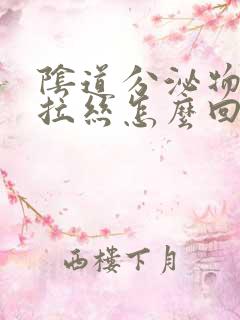 陰道分泌物
拉絲怎麼回
西樓下月